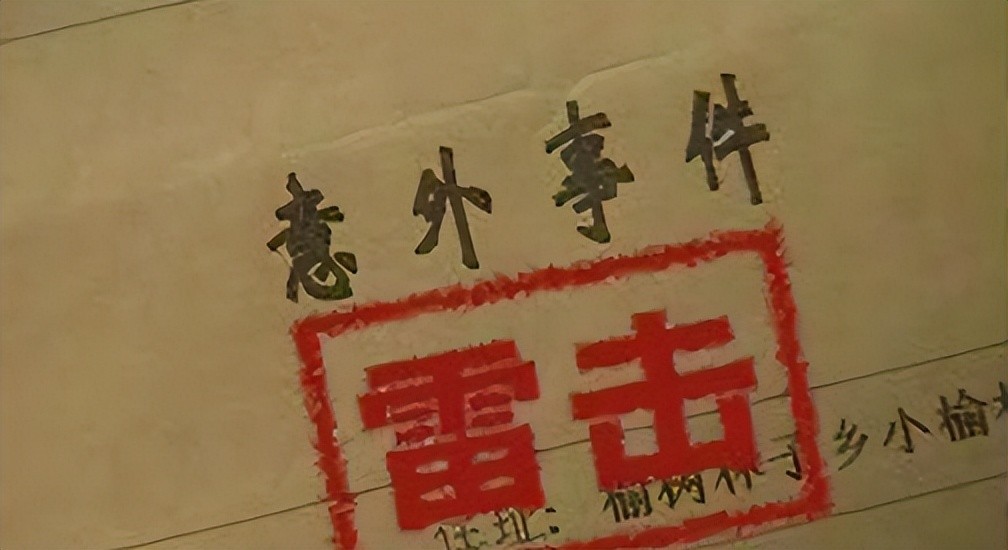 意外事件
雷击
住址：榆树林子乡小榆